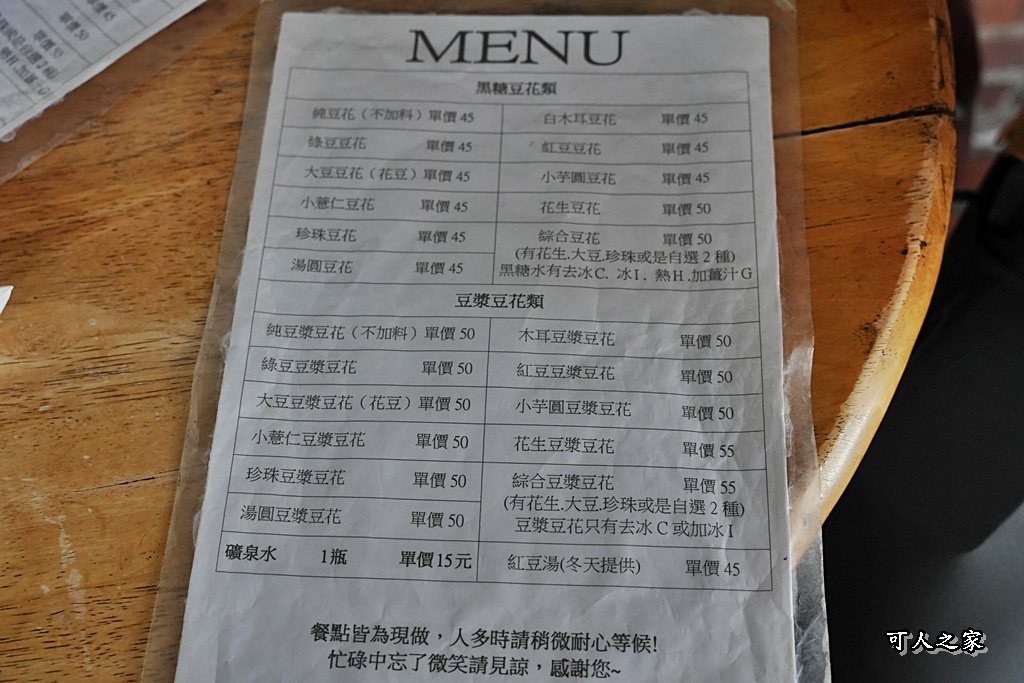 MENU
黑糖豆花類
純豆花（不加料）單價 45 白木耳豆花 單價 45
綠豆豆花 單價 45 紅豆豆花 單價 45
大豆豆花（花豆）單價 45 小芋圓豆花 單價 45
小薏仁豆花 單價 45 花生豆花 單價 50
珍珠豆花 單價 45 綜合豆花 單價 50
(有花生.大豆.珍珠或是自選 2 種)
湯圓豆花 單價 45 黑糖水有去冰 C. 冰 I . 熱 H .加薑汁 G
豆漿豆花類
純豆漿豆花（不加料）單價 50 木耳豆漿豆花 單價 50
綠豆豆漿豆花 單價 50 紅豆豆漿豆花 單價 50
大豆豆漿豆花（花豆）單價 50 小芋圓豆漿豆花 單價 50
小薏仁豆漿豆花 單價 50 花生豆漿豆花 單價 55
珍珠豆漿豆花 單價 50 綜合豆漿豆花 單價 55
(有花生.大豆.珍珠或是自選 2 種)
湯圓豆漿豆花 單價 50 豆漿豆花只有去冰 C 或加冰 I
礦泉水 1 瓶 單價 15 元 紅豆湯(冬天提供) 單價 45
餐點皆為現做，人多時請稍微耐心等候!
忙碌中忘了微笑請見諒，感謝您~
可人之家